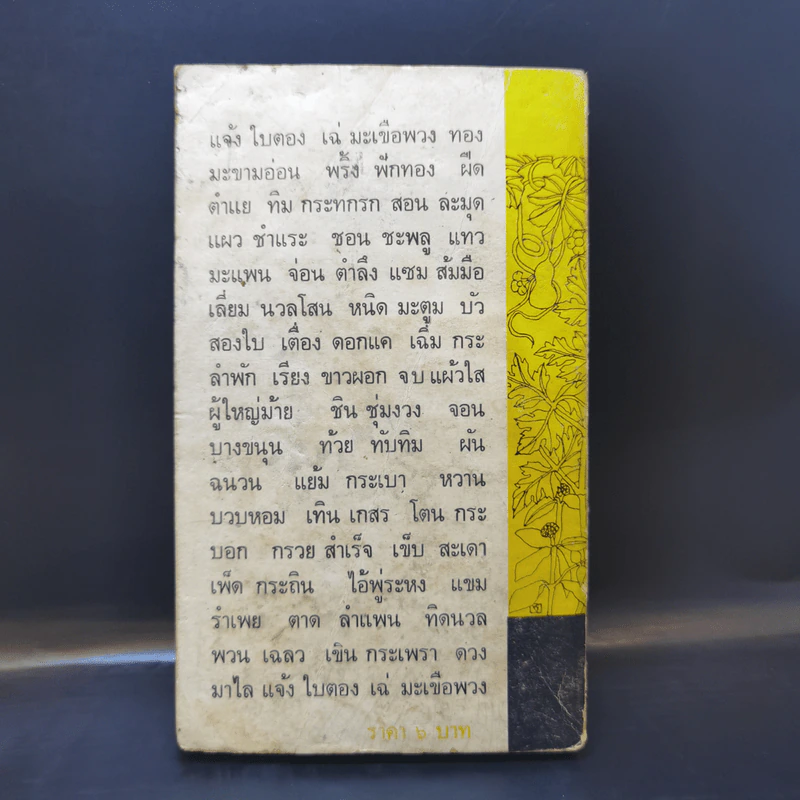 แจ้ง ใบตอง เฉ่ มะเขือพวง ทอง
มะขามอ่อน พริ้ง ฟักทอง ฝืด
ตำแย ทิม กระทกรก สอน ละมุด
แผว ชำแระ ชอน ชะพลู แทว
มะแพน จ่อน ตำลึง แซม ส้มมือ
เลี่ยม นวลโสน หนิด มะตูม บัว
สองใบ เตื่อง ดอกแค เฉิ่ม กระ
ลำพัก เรียง ขาวผอก จบ แผ้วใส
ผู้ใหญ่ม้าย ชิน ชุ่มงวง จอน
บางขนุน ท้วย ทับทิม ผัน
ฉนวน แย้ม กระเบา หวาน
บวบหอม เทิน เกสร โตน กระ
บอก กรวย สำเร็จ เข็บ สะเดา
เพ็ด กระถิน ไอ้พู่ระหง แขม
รำเพย ตาด ลำแพน ทิดนวล
พวน เฉลว เขิน กระเพรา ดวง
มาไล แจ้ง ใบตอง เฉ่ มะเขือพวง
ราคา ๖ บาท